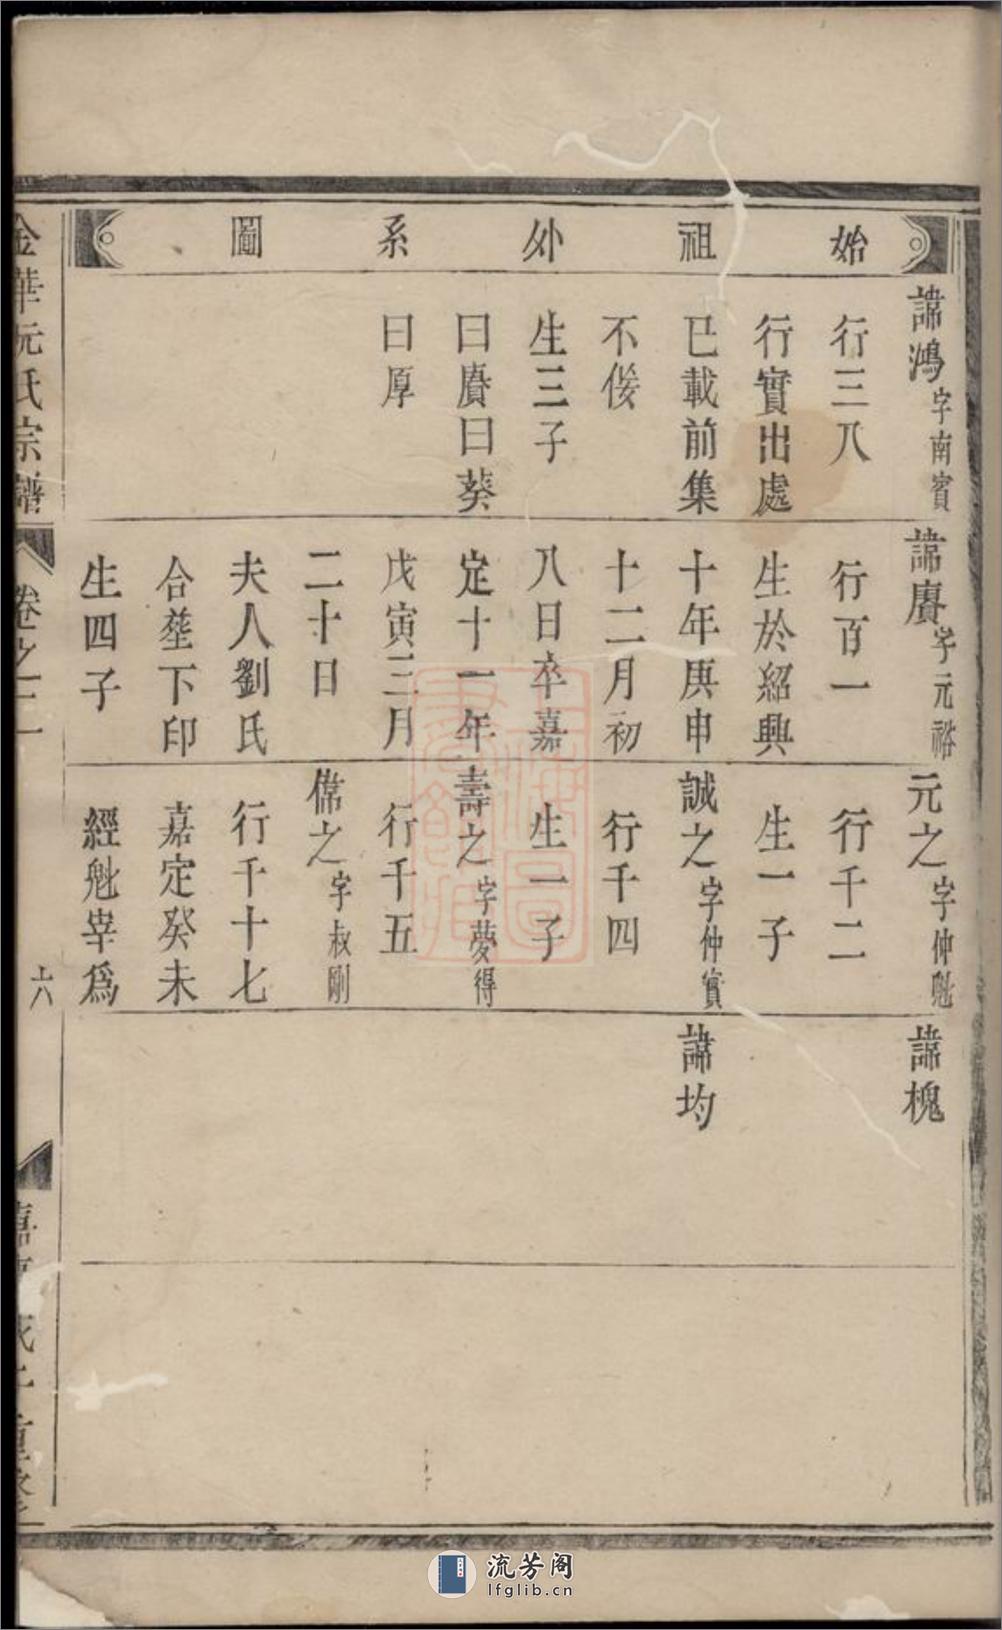 始祖外系圖
諱鴻字南賓
行三八
行實出處
已載前集
不俊
生三子
曰賡曰葵
曰厚
諱賡字元裕
行百一
生於紹興
十年庚申
十二月初
八日卒嘉
定十一年
戊寅三月
二十日
夫人劉氏
合塟下印
生四子
元之字仲魁
行千二
生一子
誠之字仲實
行千四
生一子
壽之字夢得
行千五
俻之字叔剛
行千十七
嘉定癸未
經魁宰為
諱槐
諱均
金華阮氏宗譜
卷之二
六
流芳阁
lfglib.cn